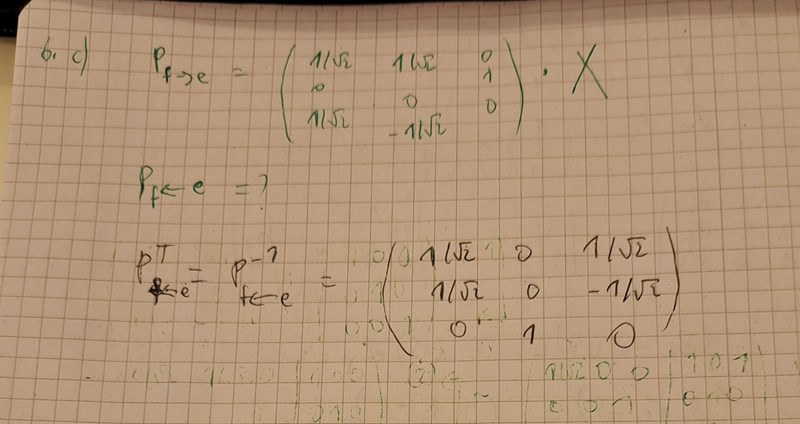 6. c) P f→e = ( 1/√2 1/√2 0
0 0 1
1/√2 -1/√2 0 ) · X
P f←e = ?
P^T f←e = P^-1 f←e = ( 1/√2 0 1/√2
1/√2 0 -1/√2
0 1 0 )